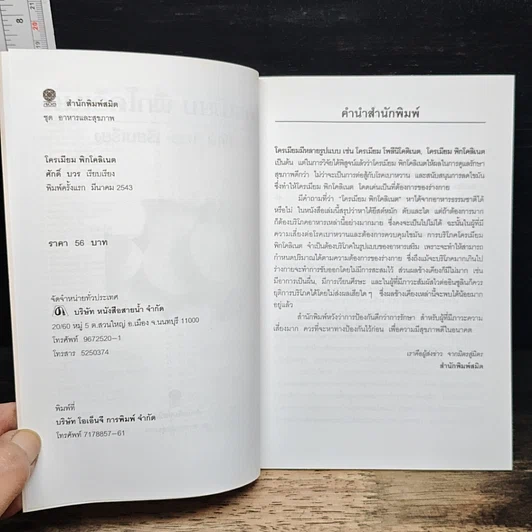 สำนักพิมพ์สมิต
ชุด อาหารและสุขภาพ
โครเมียม พิกโคลิเนต
ศักดิ์ บวร เรียบเรียง
พิมพ์ครั้งแรก มีนาคม 2543
ราคา 56 บาท
จัดจำหน่ายทั่วประเทศ
บริษัท หนังสือสายน้ำ จำกัด
20/60 หมู่ 5 ต.สวนใหญ่ อ.เมือง จ.นนทบุรี 11000
โทรศัพท์ 9672520-1
โทรสาร 5250374
พิมพ์ที่
บริษัท โอเอ็นจี การพิมพ์ จำกัด
โทรศัพท์ 7178857-61
คำนำสำนักพิมพ์
โครเมียมมีหลายรูปแบบ เช่น โครเมียม โพลีนิโคติเนต, โครเมียม พิกโคลิเนต
เป็นต้น แต่ในการวิจัยได้พิสูจน์แล้วว่าโครเมียม พิกโคลิเนตให้ผลในการดูแลรักษา
สุขภาพดีกว่า ไม่ว่าจะเป็นการต่อสู้กับโรคเบาหวาน และสนับสนุนการลดไขมัน
ซึ่งทำให้โครเมียม พิกโคลิเนต โดดเด่นเป็นที่ต้องการของร่างกาย
มีคำถามที่ว่า "โครเมียม พิกโคลิเนต" หาได้จากอาหารธรรมชาติได้
หรือไม่ ในหนังสือเล่มนี้สรุปว่าหาได้ยีสต์หมัก ตับและไต แต่ถ้าต้องการมาก
ก็ต้องบริโภคอาหารเหล่านี้อย่างมาก ซึ่งคงจะเป็นไปไม่ได้ ฉะนั้นในผู้ที่มี
ความเสี่ยงต่อโรคเบาหวาน และต้องการควบคุมไขมัน การบริโภคโครเมียม
พิกโคลิเนต จำเป็นต้องบริโภคในรูปแบบของอาหารเสริม เพราะจะทำให้สามารถ
กำหนดปริมาณได้ตามความต้องการของร่างกาย ซึ่งถึงแม้จะบริโภคมากเกินไป
ร่างกายจะทำการขับออกโดยไม่มีการสะสมไว้ ส่วนผลข้างเคียงก็มีไม่มีก เช่น
มีอาการเป็นผื่น การเวียนศีรษะ และในผู้ที่มีสัมผัสไวต่ออินซูลินก็ควร
ยุติการบริโภคได้โดยไม่ส่งผลเสียใด ๆ ซึ่งผลข้างเคียงเหล่านี้จะพบได้น้อยมาก
อยู่แล้ว
สำนักพิมพ์หวังว่าการป้องกันดีกว่าการรักษา สำหรับผู้ที่มีภาวะความ
เสี่ยงมาก ควรที่จะหาทางป้องกันไว้ก่อน เพื่อความมีสุขภาพดีในอนาคต
เราคือผู้ส่งข่าว จากมิตรสู่มิตร
สำนักพิมพ์สมิต